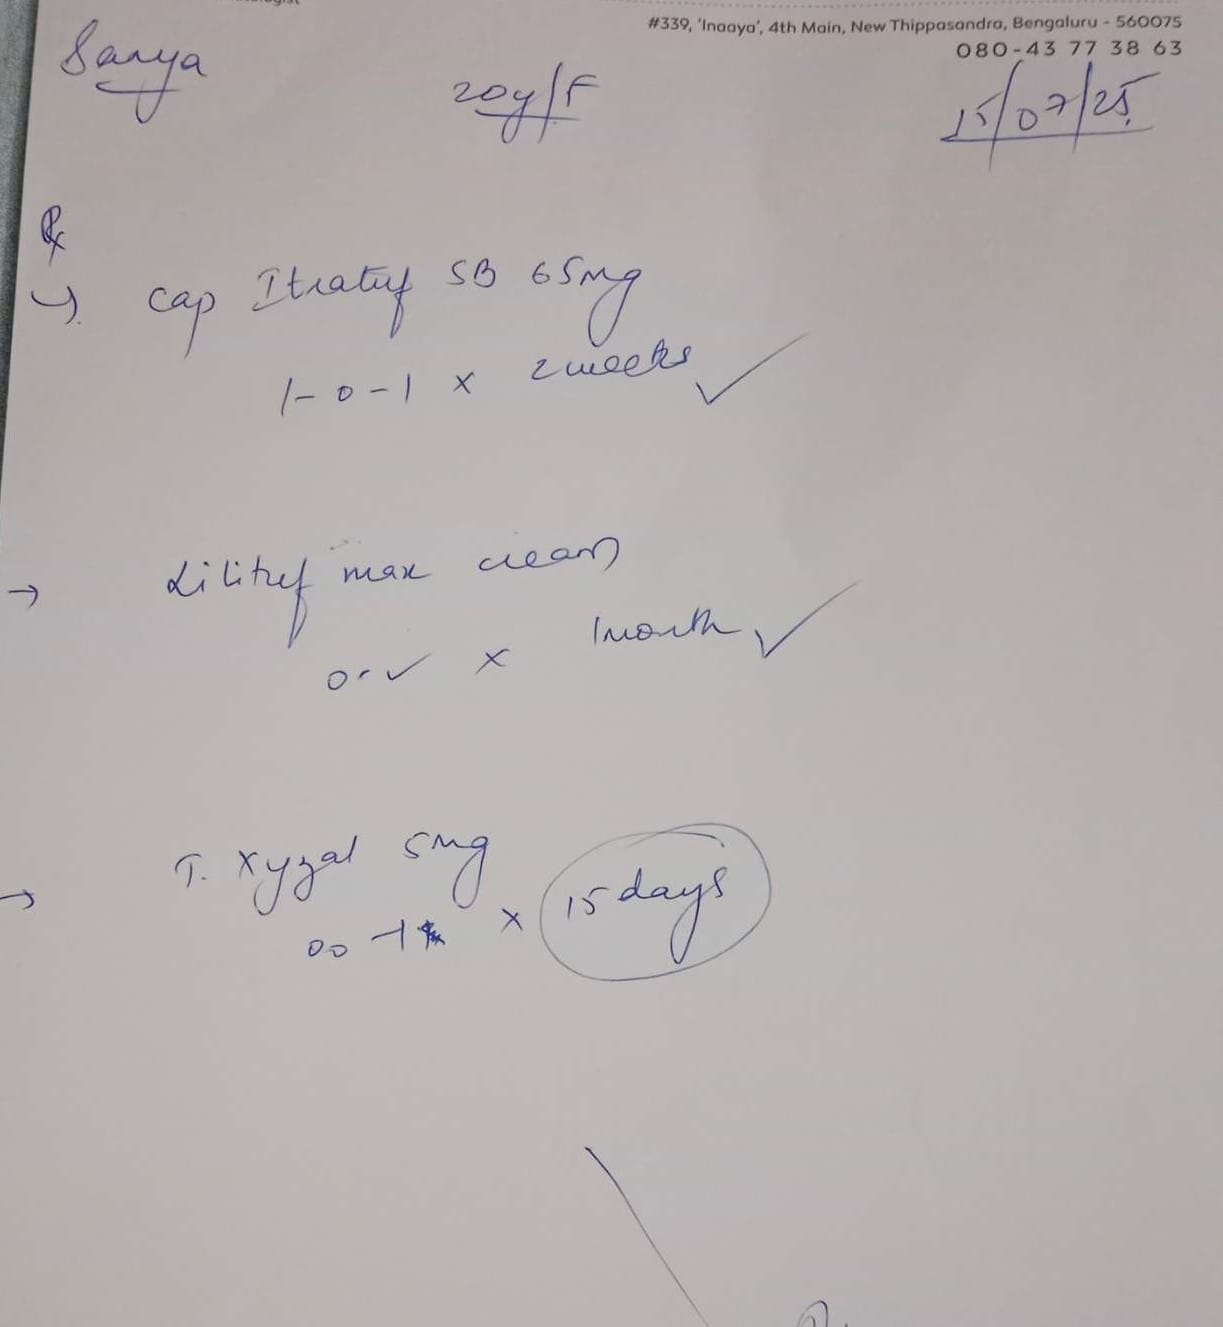 #339, 'Inaaya', 4th Main, New Thippasandra, Bengaluru - 560075
080-43 77 38 63
Sanya 20y/F 15/07/25
Rx
Cap Itratuf SB 65mg
1-0-1 x 2 weeks ✓
→ Lilituf max cream
0-✓ x 1 month ✓
→ T. Xyzal 5mg
00-1 x 15 days